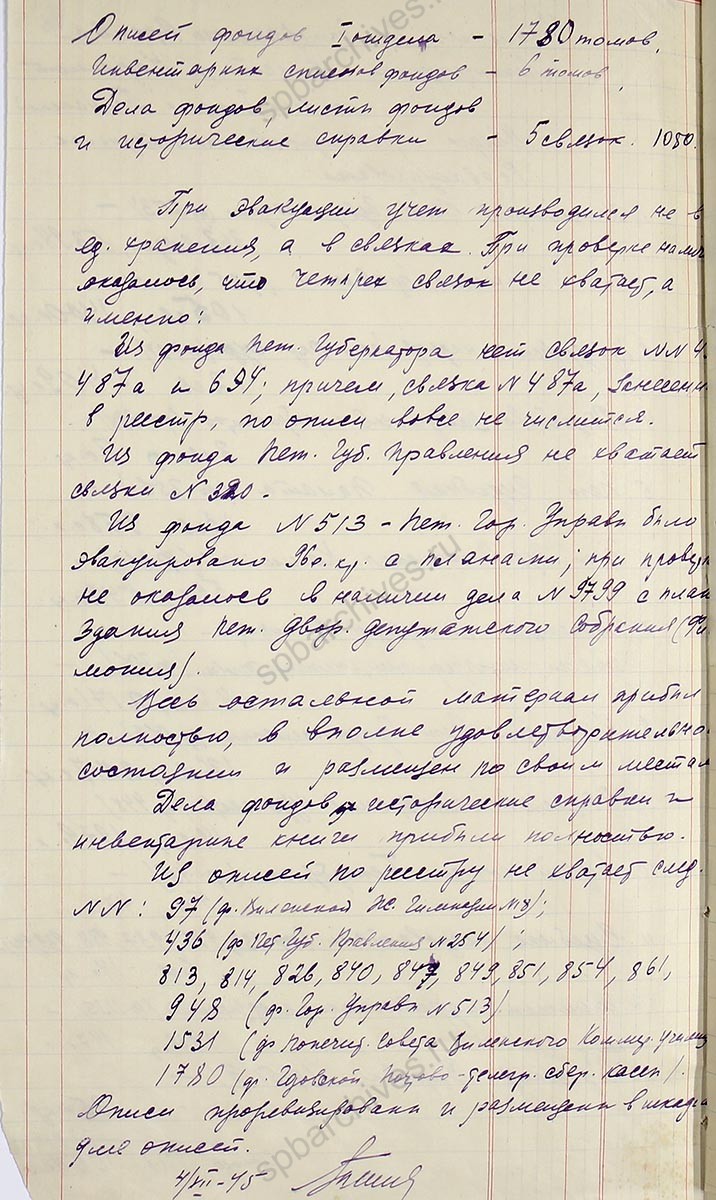 Описей фондов I отдела - 1780 томов,
Инвентарных списков фондов - 6 томов,
Дела фондов, листы фондов
и исторические справки - 5 связок. 1080.
При эвакуации учет производился не в
ед. хранения, а в связках. При проверке налич
оказалось, что четырех связок не хватает, а
именно:
Из фонда Пет. Губернатора нет связок NN 4
487а и 694; причем, связка N 487а, занесен
в реестр, по описи вовсе не числится.
Из фонда Пет. Губ. Правления не хватает
связки N 320.
Из фонда N 513 - Пет. Гор. Управы было
эвакуировано ед. хр. с планами; при провер
не оказалось в наличии дела N 9799 с план
здания Пет. двор. депутатского собрания (Фи
мония).
Весь остальной материал прибыл
полностью, в вполне удовлетворительно
состоянии и размещен по своим местам
Дела фондов, исторические справки и
инвентарные книги прибыли полностью.
Из описей по реестру не хватает след.
NN: 97 (ф. Виленской Ж. Гимназии);
436 (ф Пет. Губ. Правления N 254);
813, 814, 826, 840, 847, 849, 851, 854, 861,
948 (ф. Гор. Управы N 513)
1531 (ф Попечит. Совета Виленского Коммер. училищ
1780 (ф. Гдовской Почтово-телегр. сбер. кассы).
Описи проревизированы и размещены в шкафа
для описей.
4/VII-45
spbarchives.ru
spbarchives.ru
spbarchives.ru